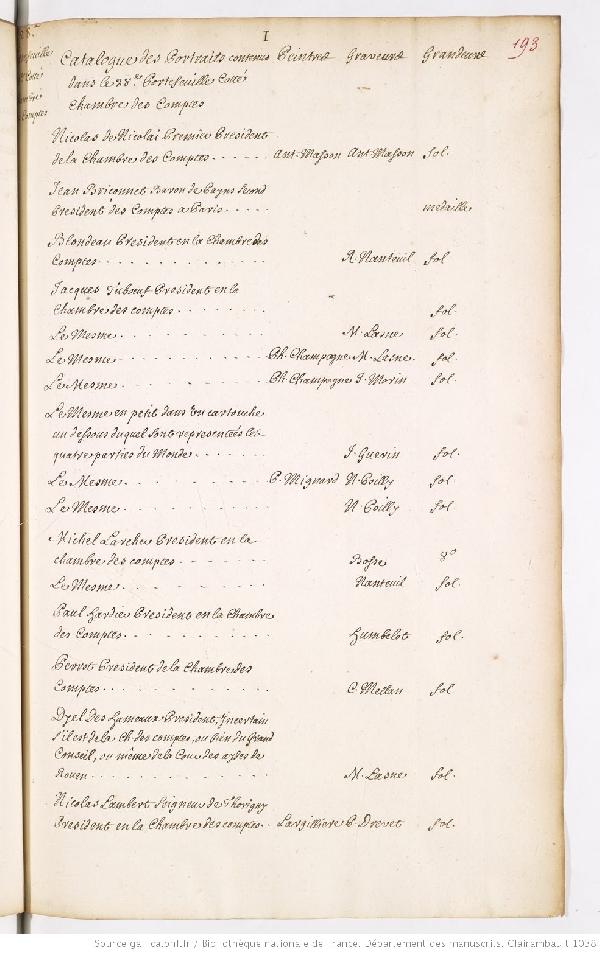 I
193
Catalogue des Portraits contenus Peintre Graveurs Grandeurs
dans le 38e. Portefeuille Cotté
Chambre des Comptes
Nicolas de Nicolai Premier President
de la Chambre des Comptes . . . . . Ant. Masson Ant. Masson fol.
Jean Briconnet Baron de
President des Comptes a Paris . . . . . medaille
Blondeau President en la Chambre des
Comptes . . . . . R. Nanteuil fol
Jacques Tubeuf President en la
Chambre des comptes . . . . . fol.
Le Mesme . . . . . M. Lasne fol.
Le Mesme . . . . . Ph. Champagne M. Lesne fol.
Le Mesme . . . . . Ph. Champagne J. Morin fol.
Le Mesme en petit dans un cartouche
au dessous duquel sont representées les
quatre parties du Monde . . . . . J. Guerin fol.
Le Mesme . . . . . P. Mignard N. Poilly fol.
Le Mesme . . . . . N. Poilly fol
Michel Larcher President en la
chambre des comptes . . . . . Bosse 8o
Le Mesme . . . . . Nanteuil fol.
Paul Hardier President en la Chambre
des Comptes . . . . . Humbelot fol.
Perrot President de la Chambre des
Comptes . . . . . C. Mellan fol
Dyel Des Hameaux President, Incertain
s'il est de la Ch. des comptes, ou bien du Grand
Conseil, ou même de la Cour des aydes de
Rouen . . . . . M. Lasne fol.
Nicolas Lambert Seigneur de Thorigny
President en la Chambre des comptes . . Largilliere P. Drevet fol.
Source gallica.bnf.fr / Bibliothèque nationale de France. Département des manuscrits. Clairambault 1038